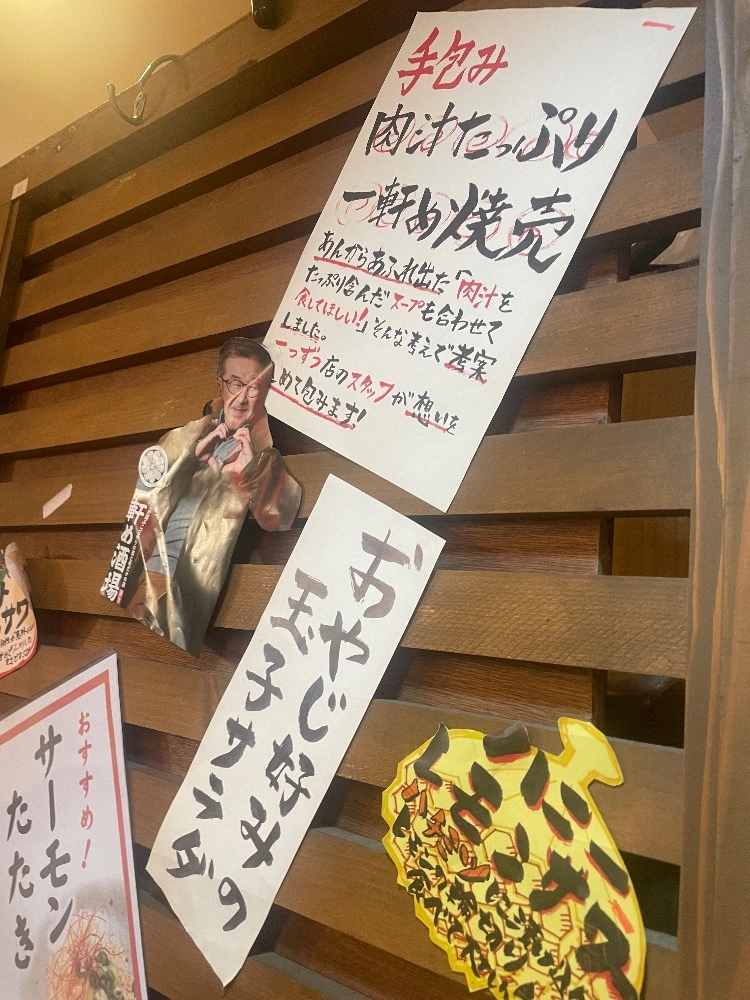 手包み
肉汁たっぷり
一軒め焼売
あんからあふれ出た「肉汁を
たっぷり含んだスープも合わせて
食してほしい!」そんな考えで考案
しました。
一つずつ店のスタッフが想いを
めて包みます!
軒め酒場
おやじ好みの
玉子サラダ
おすすめ!
サーモン
たたき